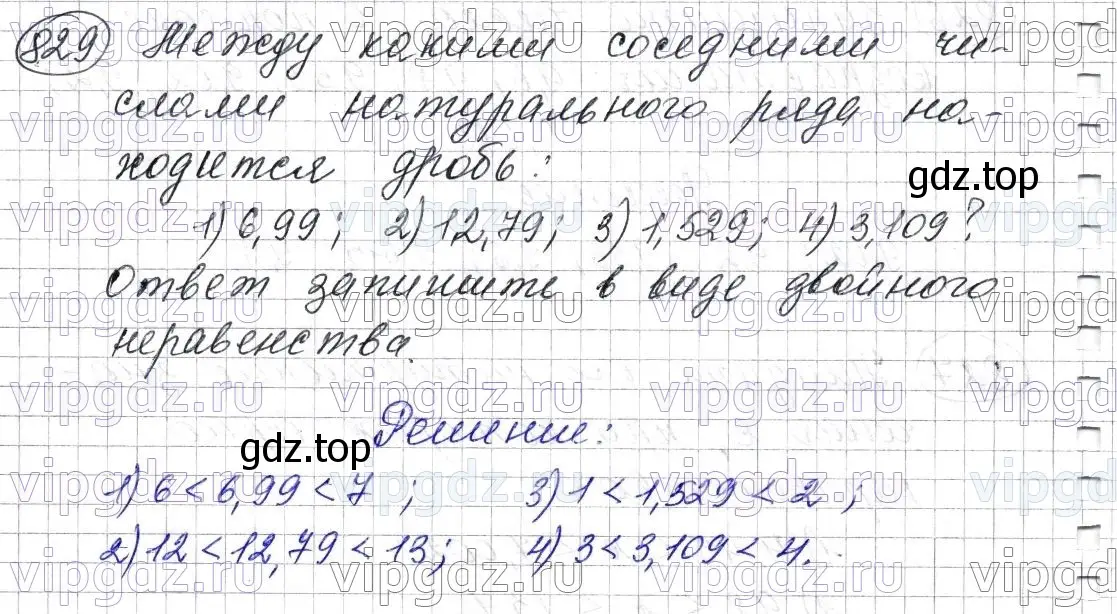 829 Между какими соседними чи-
слами натурального ряда на-
ходится дробь:
gdz.top
1) 6,99; 2) 12,79; 3) 1,529; 4) 3,109?
Ответ запишите в виде двойного
неравенства.
Решение:
gdz.top
1) 6 < 6,99 < 7 ; 3) 1 < 1,529 < 2 ;
2) 12 < 12,79 < 13; 4) 3 < 3,109 < 4.
vipgdz.ru